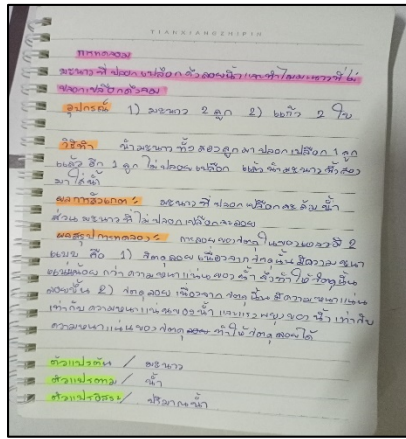 TIANXIANGZHIPIN
การทดลอง
มะนาวที่ปลอกเปลือกตัวลอยน้ำและทำไมมะนาวที่ไม่
ปลอกเปลือกถึงลอย
อุปกรณ์ 1) มะนาว 2 ลูก 2) แก้ว 2 ใบ
วิธีทำ นำมะนาวทั้งสองลูกมาปลอกเปลือก 1 ลูก
แล้วอีก 1 ลูก ไม่ปลอกเปลือก แล้วนำมะนาวทั้งสอง
มาใส่น้ำ
ผลการสังเกต : มะนาวที่ปลอกเปลือกจะจมน้ำ
ส่วนมะนาวที่ไม่ปลอกเปลือกจะลอย
ผลสรุปการทดลอง : การลอยของวัตถุในของเหลวมี 2
แบบ คือ 1) วัตถุลอยเนื่องจากวัตถุนั้นมีความหนา
แน่นน้อยกว่าความหนาแน่นของน้ำ จึงทำให้วัตถุนั้น
ลอยขึ้น 2) วัตถุลอยเนื่องจากวัตถุนั้นมีความหนาแน่น
เท่ากับความหนาแน่นของน้ำ และแรงพยุงของน้ำเท่ากับ
ความหนาแน่นของวัตถุ ทำให้วัตถุลอยได้
ตัวแปรต้น / มะนาว
ตัวแปรตาม / น้ำ
ตัวแปรอิสระ / ปริมาณน้ำ